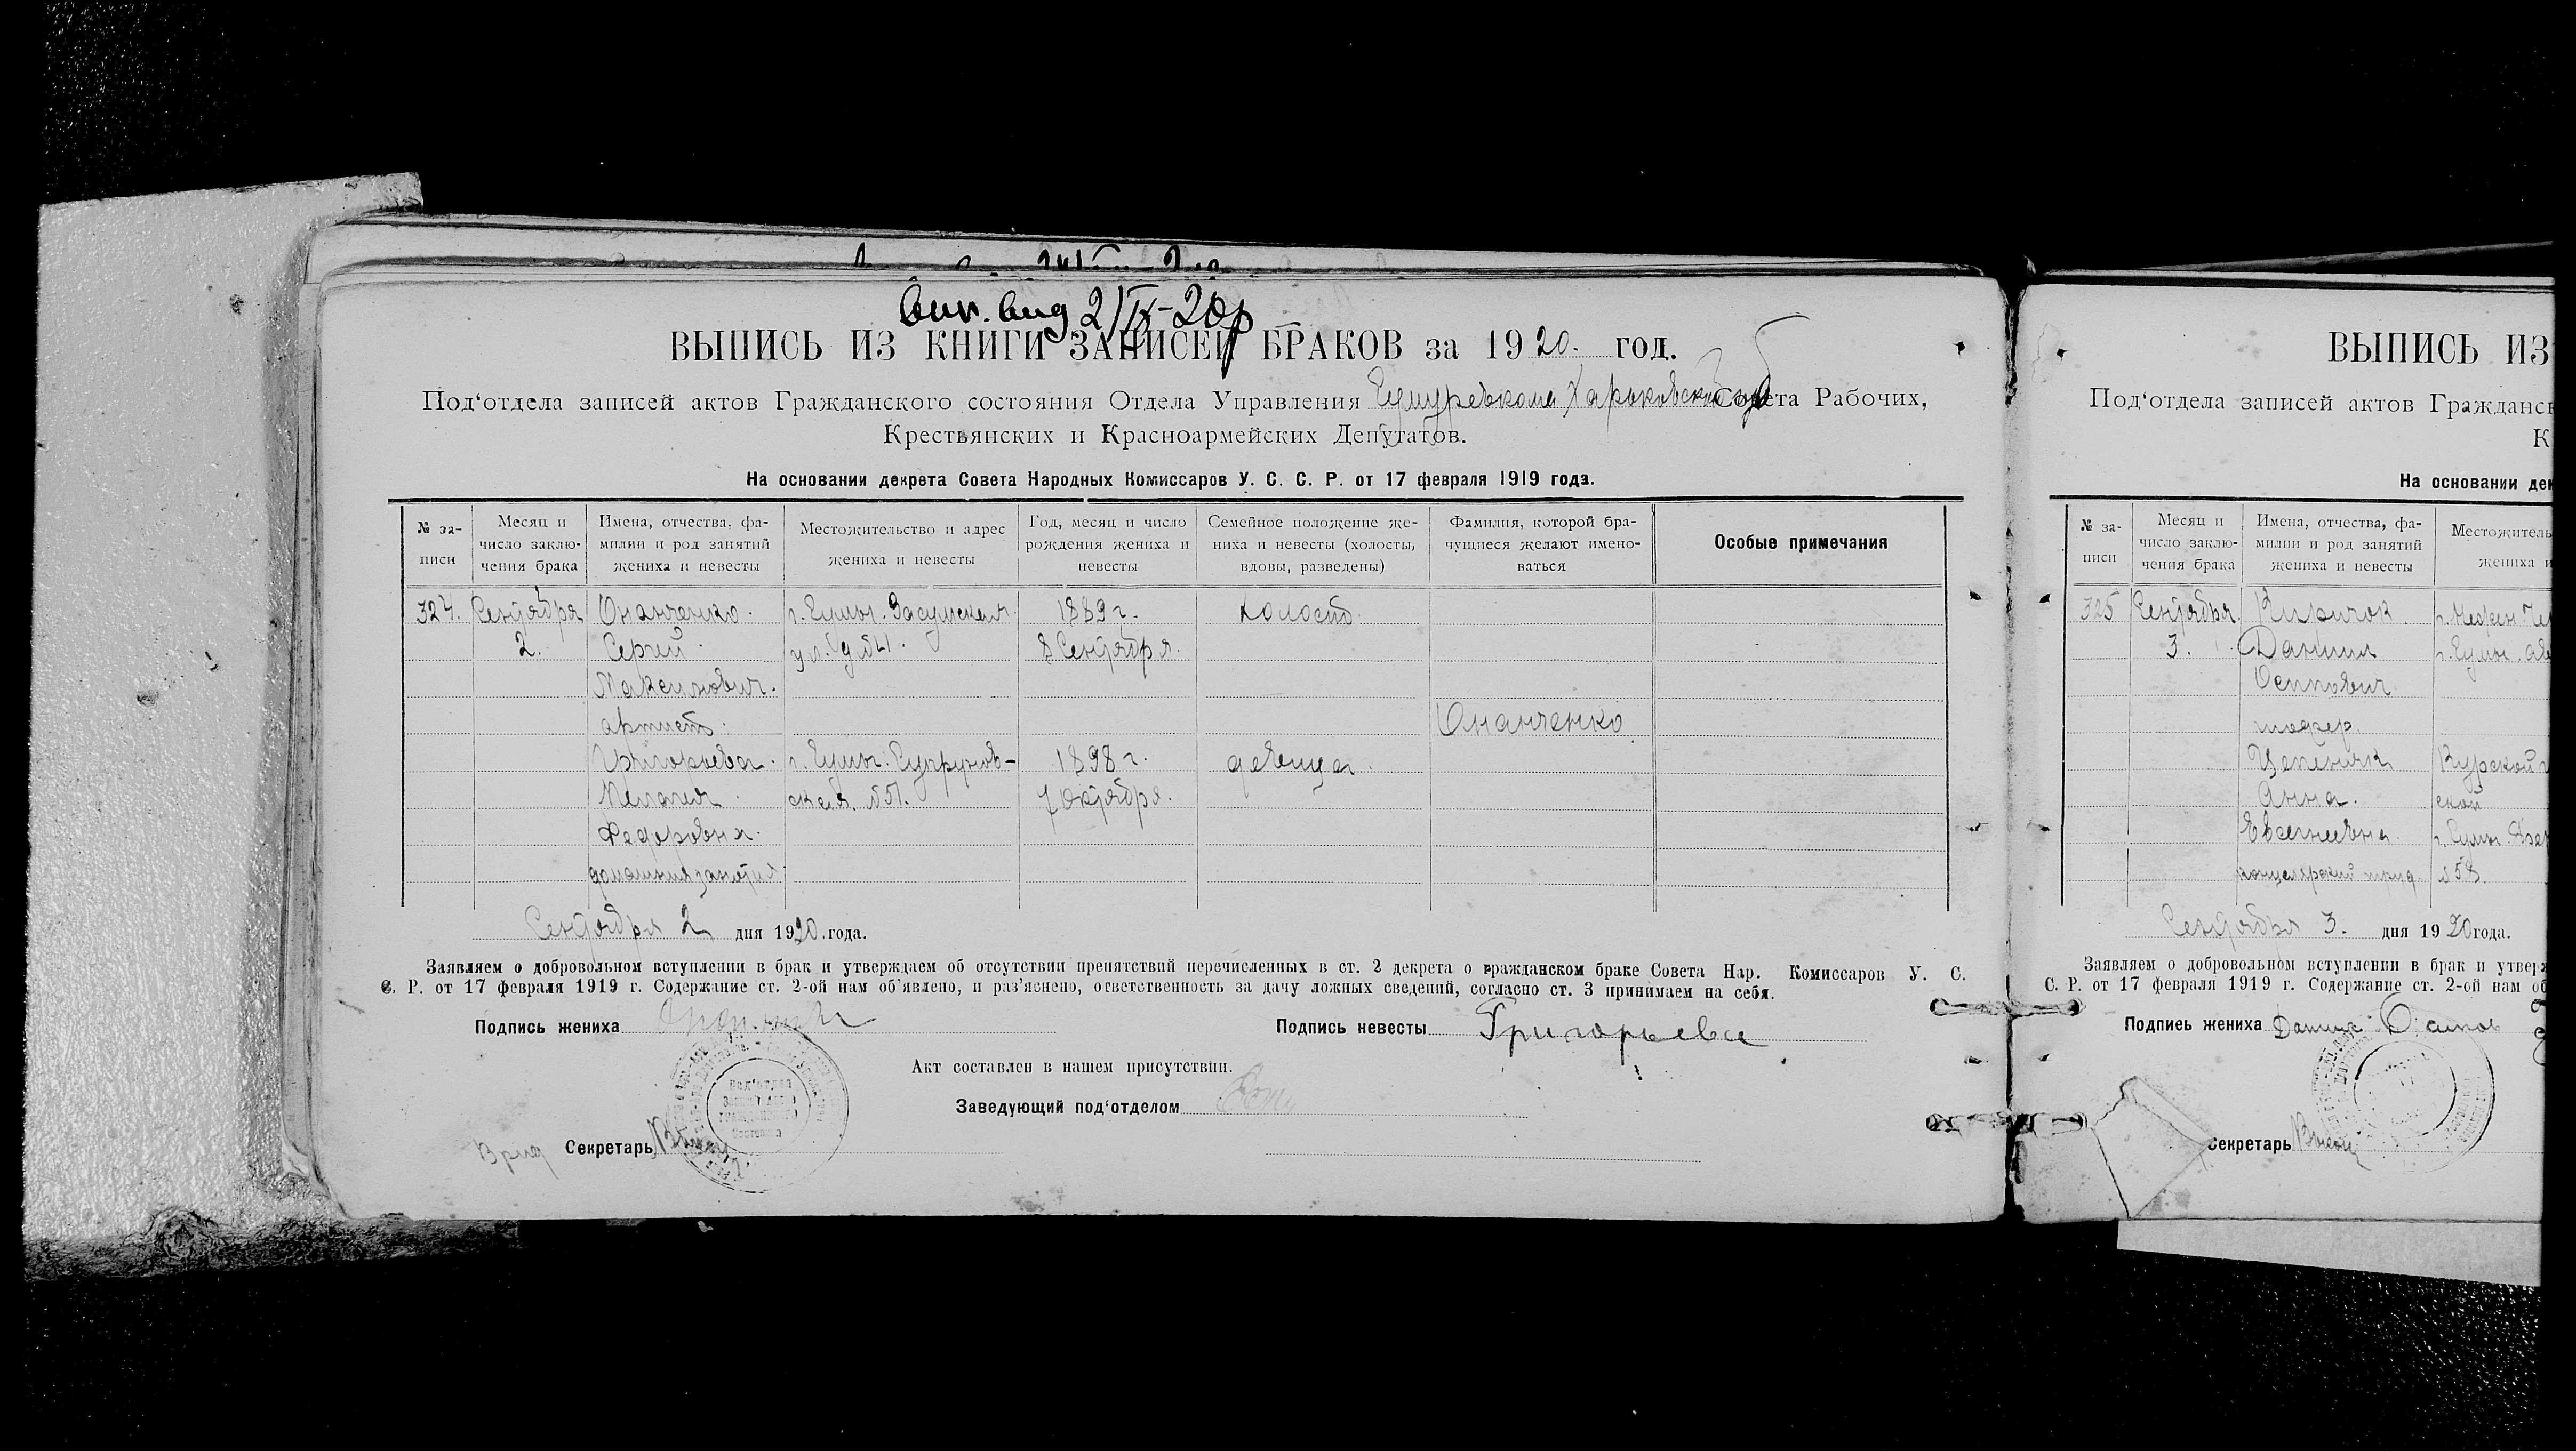 вып. вид 2/IX-20р
ВЫПИСЬ ИЗ КНИГИ ЗАПИСЕЙ БРАКОВ за 1920. год.
Под‘отдела записей актов Гражданского состояния Отдела Управления Харьковской губ Совета Рабочих,
Крестьянских и Красноармейских Депутатов.
На основании декрета Совета Народных Комиссаров У. С. С. Р. от 17 февраля 1919 года.
№ за-
писи
Месяц и
число заклю-
чения брака
Имена, отчества, фа-
милии и род занятий
жениха и невесты
Местожительство и адрес
жениха и невесты
Год, месяц и число
рождения жениха и
невесты
Семейное положение же-
ниха и невесты (холосты,
вдовы, разведены)
Фамилия, которой бра-
чущиеся желают имено-
ваться
Особые примечания
324. Сентября Онанченко. г. Сумы. Засумская 1889 г. холост.
2. Сергей ул. д № 41. 8 Сентября.
Максимович.
артист. Онанченко
Григорьева. г. Сумы. Супрунов- 1898 г. девица.
Пелагея ская № 51. 7 Октября.
Федоровна.
домашния занятия
Сентября 2 дня 1920. года.
Заявляем о добровольном вступлении в брак и утверждаем об отсутствии препятствий перечисленных в ст. 2 декрета о гражданском браке Совета Нар. Комиссаров У. С.
С. Р. от 17 февраля 1919 г. Содержание ст. 2-ой нам об‘явлено, и раз‘яснено, ответственность за дачу ложных сведений, согласно ст. 3 принимаем на себя.
Подпись жениха
Подпись невесты Григорьева
Акт составлен в нашем присутствии.
Заведующий под‘отделом
Врид Секретарь
Под‘отдел
ВЫПИСЬ ИЗ
Под‘отдела записей актов Гражданск
К
На основании дек
№ за-
писи
Месяц и
число заклю-
чения брака
Имена, отчества, фа-
милии и род занятий
жениха и невесты
Местожитель
жениха и
325 Сентября Киричок
3. Даниил г. Сумы.
Осипович
шофер.
Курской г
Анна. ской
Евсеньевна. г. Сумы.
канцелярский труд № 58.
Сентября 3. дня 1920 года.
Заявляем о добровольном вступлении в брак и утверж
С. Р. от 17 февраля 1919 г. Содержание ст. 2-ой нам об
Подпись жениха Даниил
Секретарь